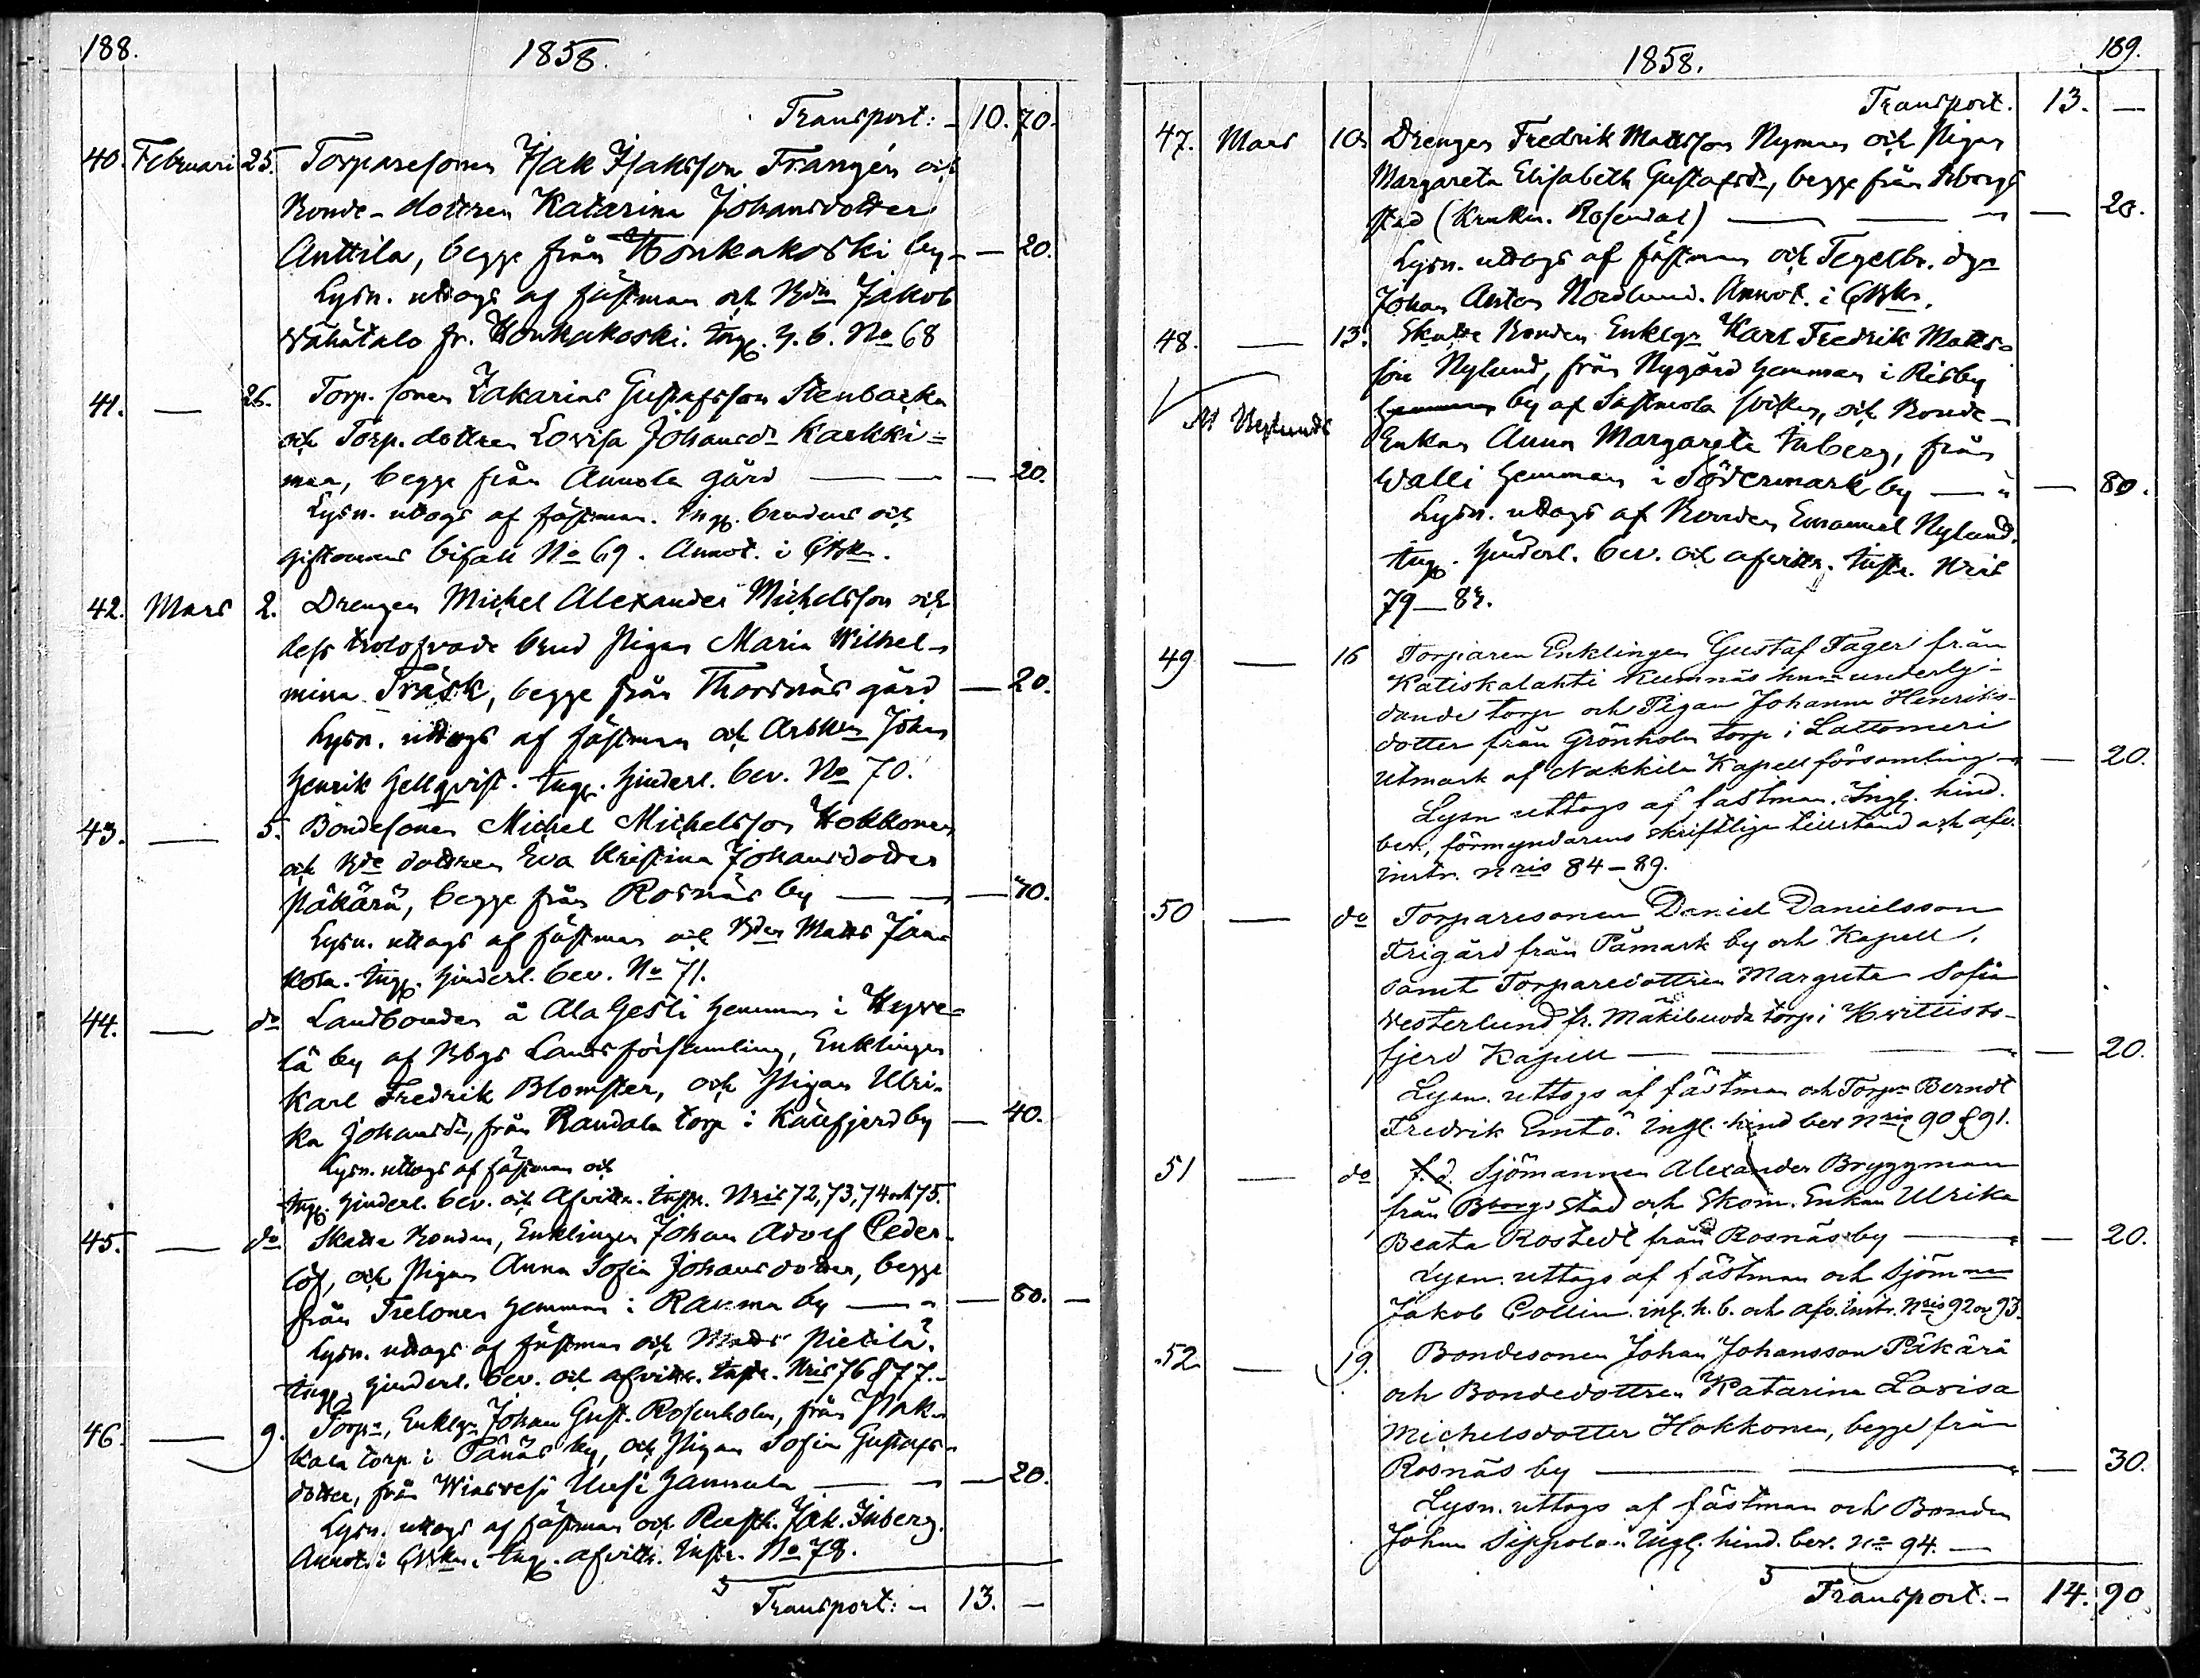 188.
1858.
Transport: – 10. 70.
40. Februari 25. Torparesonen Isak Isaksson Frangén och
Bonde-dottren Katarina Johansdotter
Anttila, begge från Honkakoski by – – 20.
Lysn. uttogs af fästman och Bdn Jakob
Wähätalo fr. Honkakoski. Ingf. h. b. No 68
41. — 26. Torp. sonen Zakarias Gustafsson Stenbacka
och Torp. dottren Lovisa Johansdr Karkki=
maa, begge från Annola gård — – — 20.
Lysn. uttogs af fästman. Ingf. brudens och
giftomans bifall No 69. Annot. i
42. Mars 2. Drengen Michel Alexander Michelsson och
dess trolofvade brud Pigan Maria Wilhel-
mina Träsk, begge från Thorsnäs gård — 20.
Lysn. uttogs af fästman och Arbkn Johan
Henrik Hellqvist. Ingf. hinderl. bev. No 70.
43. — 5. Bondesonen Michel Michelsson Hokkonen
och Bde dottren Eva Kristina Johansdotter
Päkärä, begge från Rosnäs by — – — 70.
Lysn. uttogs af fästman och Bden Matts Jaa-
kola. Ingf. hinderl. bev. No 71.
44. — do Landbonden å Ala Gesti hemman i Hyve-
lä by af Bbgs Landsförsamling, Enklingen
Karl Fredrik Blomster, och Pigan Ulri-
ka Johansdr, från Randala torp i Kaufjerd by — 40.
Lysn. uttogs af fästman och
Ingf. hinderl. bev. och Afvittr. instr. Nris 72, 73, 74 och 75.
45. — do Skatte Bonden, Enklingen Johan Adolf Ceder-
löf, och Pigan Anna Sofia Johansdotter, begge
från Trelonen hemman i Rauma by — – — 80. –
Lysn. uttogs af fästman och Matts Pietilä.
Ingf. hinderl. bev. och afvittr. instr. Nris 76 & 77. –
46. — 9. Torpn, Enklgn Johan Gust. Rosenholm, från
torp i Pänäs by, och Pigan Sofia Gustafs-
dotter, från — – — 20.
Lysn. uttogs af fästman och Rusth. Jak. Inberg.
Annot. i Ingf. afvittr. instr. No 78.
Transport: – 13. –
1858.
189.
Transport. 13. —
47. Mars 10. Drengen Fredrik Mattsson Nyman och Pigan
Margareta Elisabeth Gustafsdr, begge från Bborgs
stad (Rosendal) — — – — 20.
Lysn. uttogs af fästman och Tegelbr.
Johan Anton Nordlund. Annot. i
48. — 13. Skatte Bonden Enklgn Karl Fredrik Matts-
son Nylund, från Nygård hemman i Risby
by af Sastmola socken, och Bonde-
Nylunds Enkan Anna Margareta Inberg, från
Walli hemman i Södermark by — – — 80.
Lysn. uttogs af Bonden Emanuel Nylund.
Ingf. hinderl. bev. och afvittr. instr. Nris
79—83.
49 — 16 Torparen Enklingen Gustaf Fager från
Katiskalahti Kumnäs underly-
dande torp och Pigan Johanna Henriks-
dotter från Grönholm torp i Lattomeri
utmark af Nakkila Kapellförsamling – — 20.
Lysn uttogs af fästman. Ingf. hind.
bev., förmyndarens skriftliga tillstånd och afv.
instr. nris 84–89.
50 — do Torparesonen Daniel Danielsson
Frigård från Påmark by och Kapell,
samt Torparedottren Margreta Sofia
Westerlund fr. Mäkiluoda torp i Hvittisbo-
fjerd Kapell — — – — 20.
Lysn. uttogs af fästman och Torpn Berndt
Fredrik Emtö. Ingf. hind bev nris 90 & 91.
51 — do f. d. Sjömannen Alexander Bryggman
från Bborgs stad och Skom. Enkan Ulrika
Beata Rostedt från Rosnäs by — – — 20.
Lysn. uttogs af fästman och Sjömnen
Jakob Collin. inf. h. b. och afv. instr. Nris 92 o 93.
52 — 19. Bondesonen Johan Johansson Päkärä
och Bondedottren Katarina Lovisa
Michelsdotter Hokkonen, begge från
Rosnäs by — — – — 30.
Lysn. uttogs af fästman och Bonden
Johan Sippola. Ingf. hind. bev. no 94. —
Transport. – 14. 90